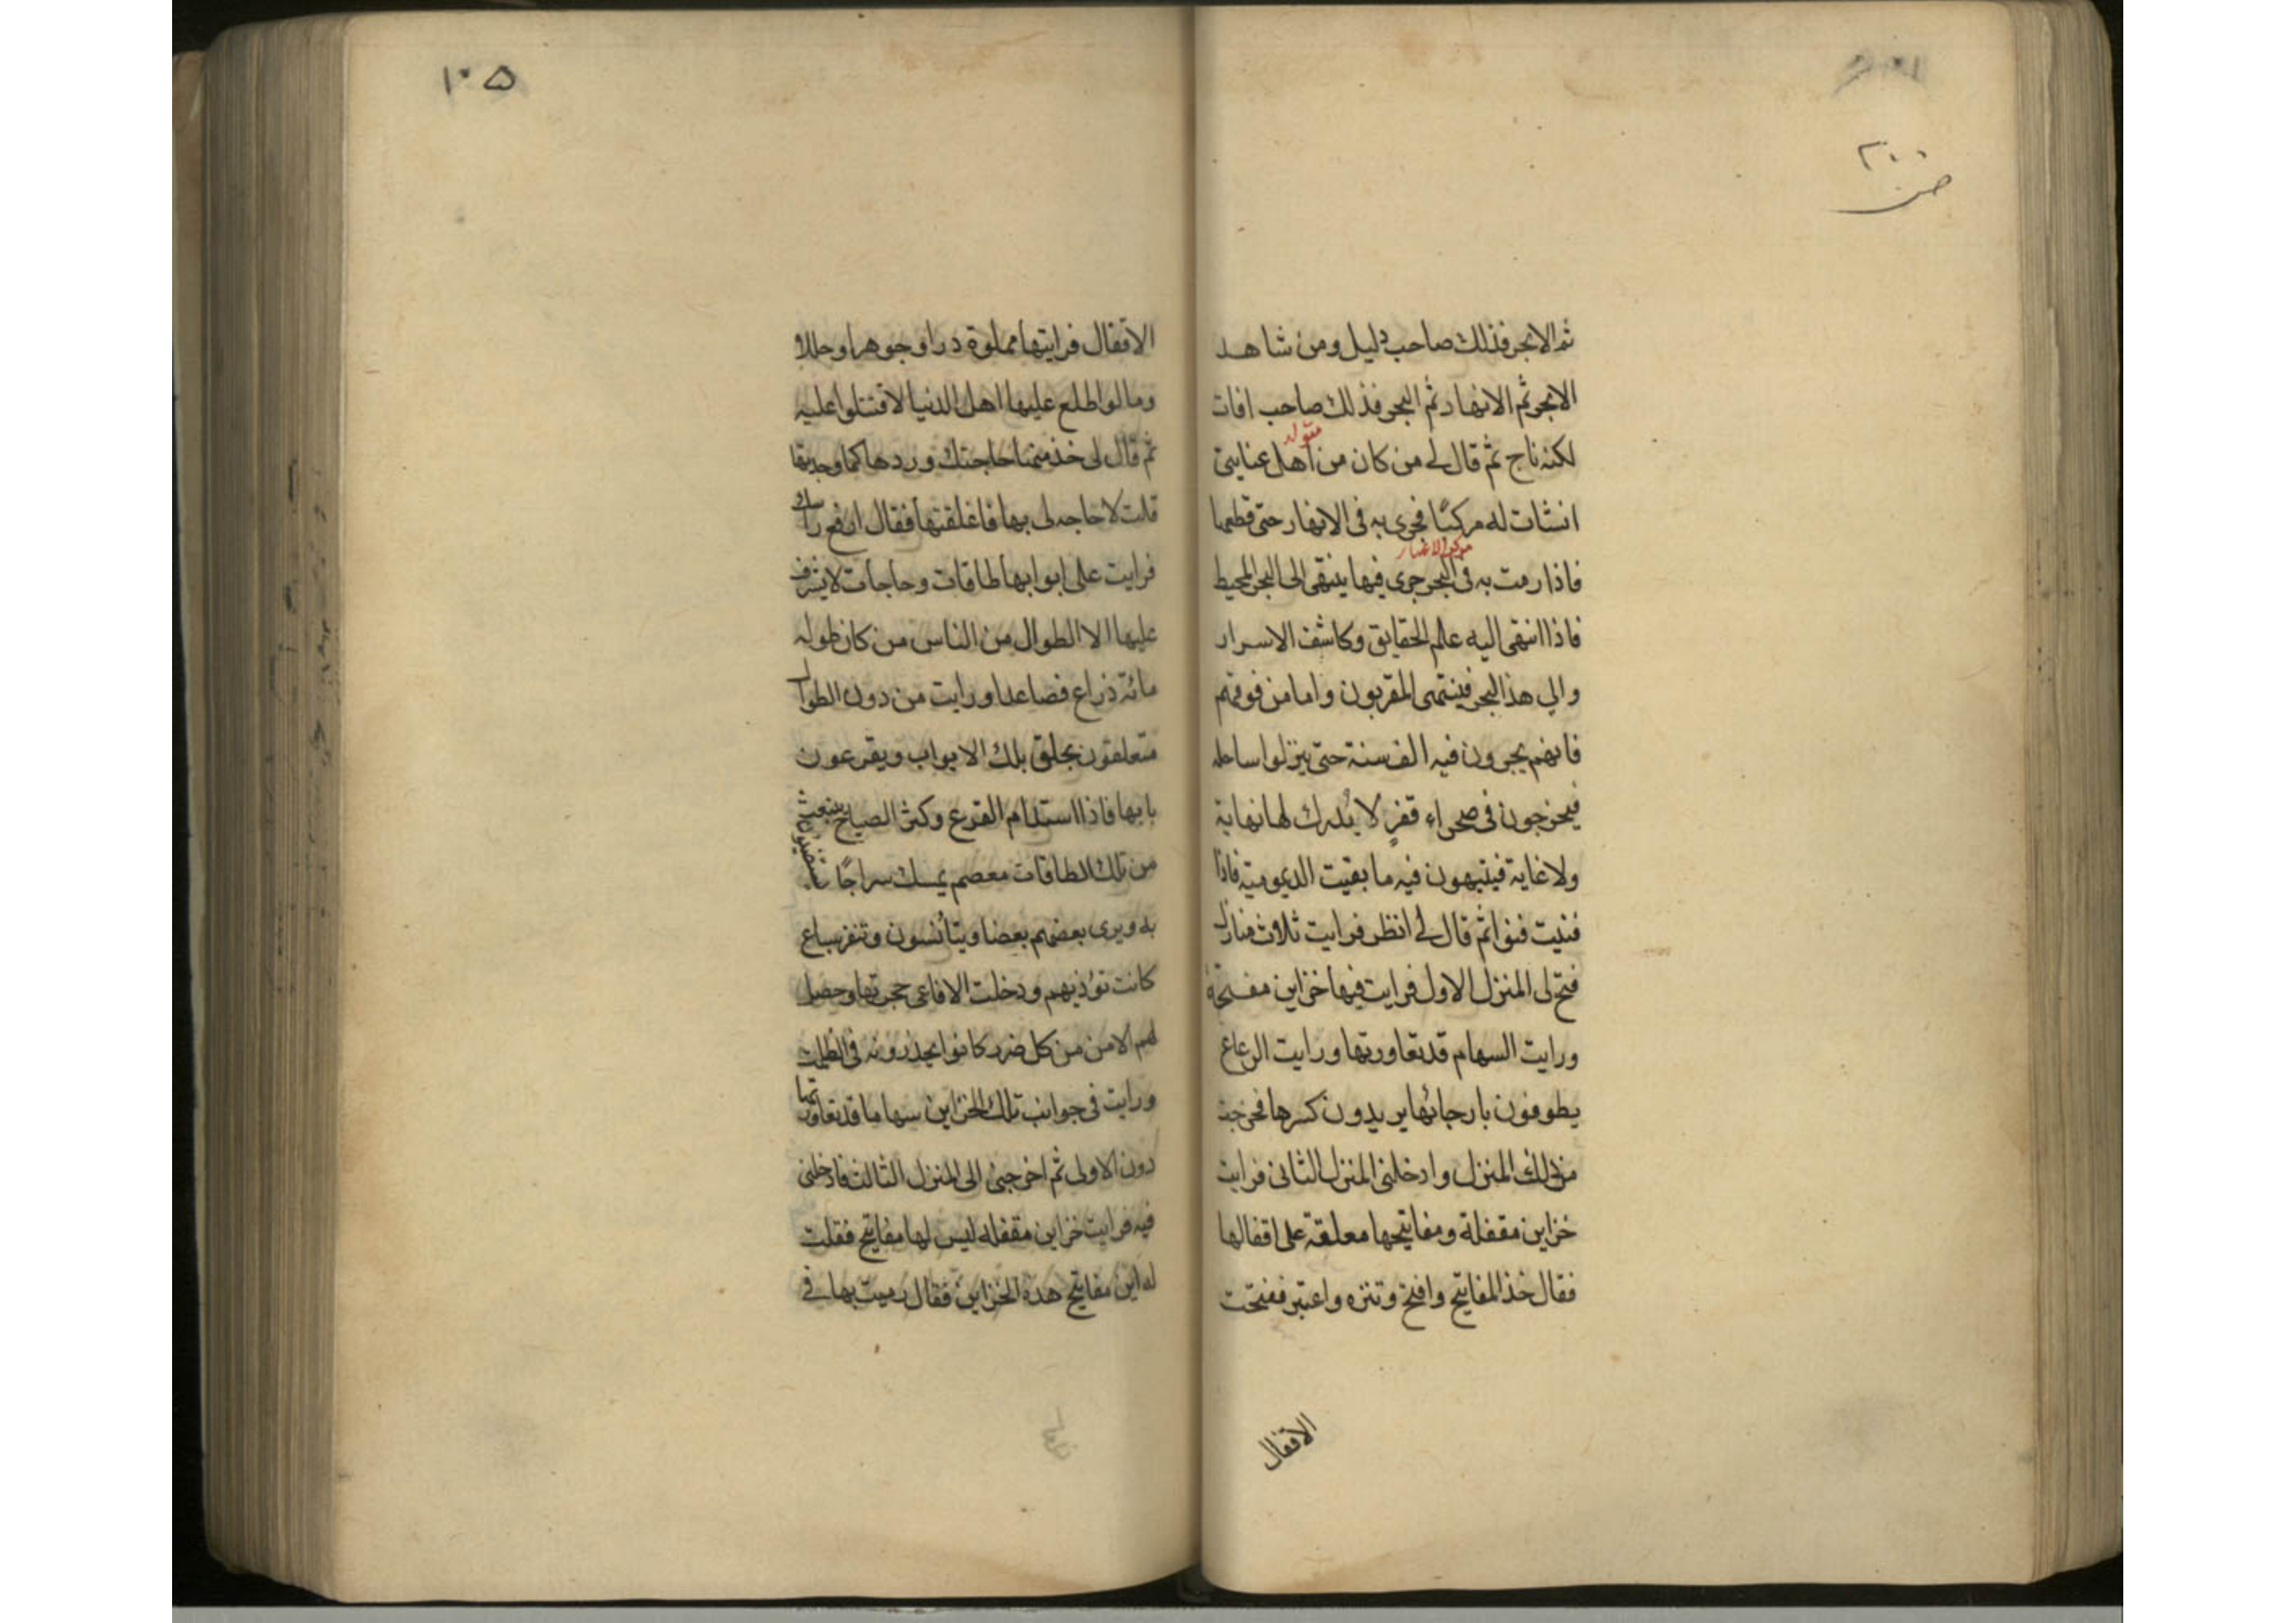 ٢٠٠
ص
ثم الابحر فذلك صاحب دليل ومن شاهد
الابحر ثم الانهار ثم البحر فذلك صاحب افات
مقوله
لكنه ناج ثم قال لى من كان من اهل عنايتى
انشات له مركبًا فجرى به فى الانهار حتى قطعها
فاذا رمت به فى البحر جرى فيها ينتهى الى البحر المحيط
فاذا انتهى اليه علم الحقايق وكاشف الاسرار
والى هذا البحر فينتهى المقربون واما من فوقهم
فانهم يجرون فيه الف سنة حتى ينزلوا ساحله
فيخرجون فى صحراء قفرٍ لا يُدرك لها نهاية
ولا غاية فيتيهون فيه ما بقيت الديمومية فاذا
فنيت فنوا ثم قال لى انظر فرايت ثلاث منازل
فتح لى المنزل الاول فرايت فيها خزاين مفتحة
ورايت السهام قد تعاورتها ورايت الرعاع
يطوفون بارجائها يريدون كسرها فخرجت
من ذلك المنزل وادخلنى المنزل الثانى فرايت
خزاين مقفلة ومفاتيحها معلقة على اقفالها
فقال خذ المفاتيح وافتح وتنزه واعتبر ففتحت
الاقفال
١٠۵
الاقفال فرايتها مملوة درا وجوهرا وحللا
وما لو اطلع عليها اهل الدنيا لاقتتلوا عليه
ثم قال لى خذ منها حاجتك وردها كما وجدتها
قلت لا حاجه لى بها فاغلقتها فقال ارفع راسك
فرايت على ابوابها طاقات وحاجات لا يشرف
عليها الا الطوال من الناس من كان طوله
مائة ذراع فصاعدا ورايت من دون الطوال
متعلقون بحلق تلك الابواب ويقرعون
بابها فاذا استدام القرع وكثر الصياح ينبعث
من تلك الطاقات معصم يمسك سراجًا يستضيئون
به ويرى بعضهم بعضا ويتأنسون وتنفر سباع
كانت تؤذيهم ودخلت الافاعى حجرتها وحصل
لهم الامن من كل ضرر كانوا يحذرونه فى الظلمة
ورايت فى جوانب تلك الخزاين سهاما قد تعاورتها
دون الاولى ثم اخرجنى الى المنزل الثالث فادخلنى
فيه فرايت خزاين مقفله ليس لها مفاتيح فقلت
له اين مفاتيح هذه الخزاين فقال رميت بها فى